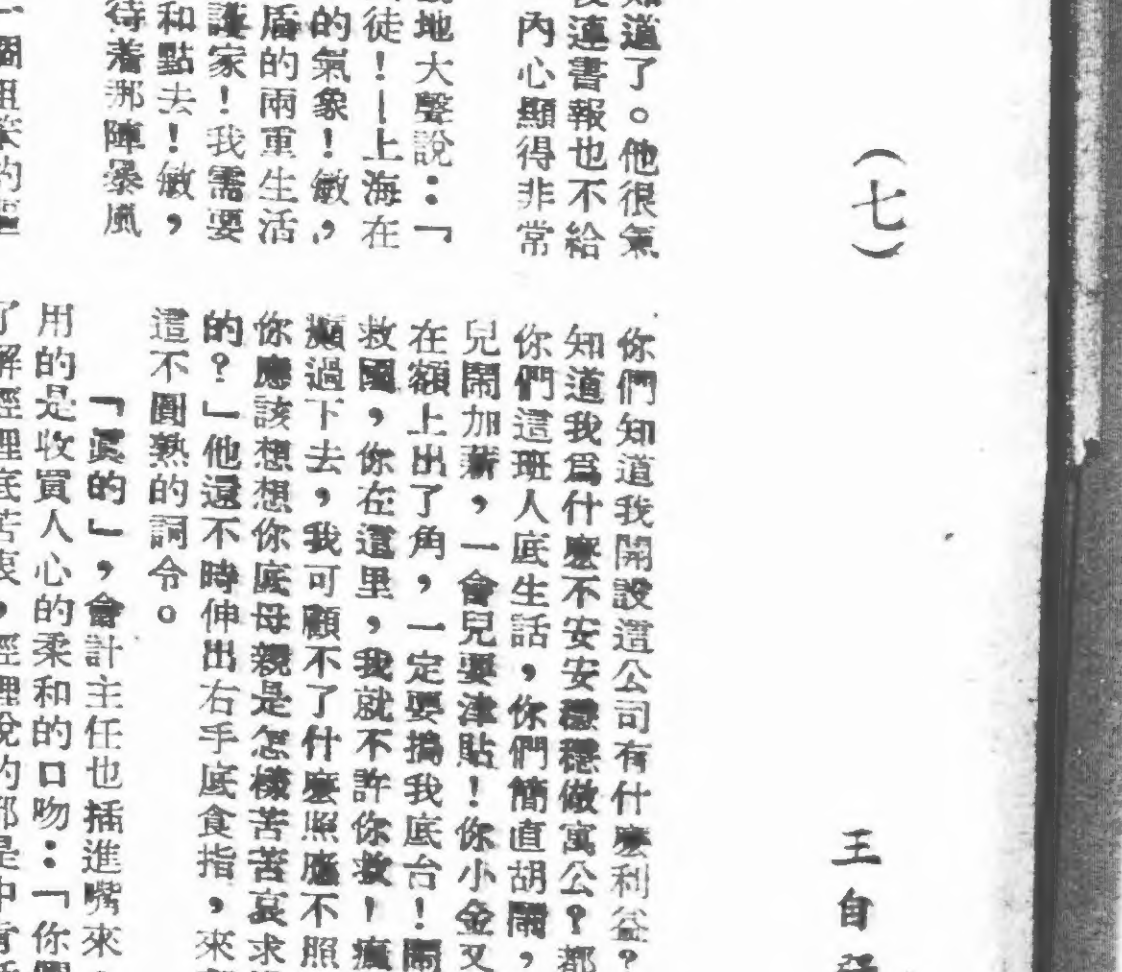 （七）
王自
知道了。他很氣
後連書報也不給
內心顯得非常
地大聲說：「
徒！—上海在
的氣象！敏，
盾的兩重生活
護家！我需要
和點去！敏，
待着那陣暴風
一個粗笨的
你們知道我開設這公司有什麼利益？
知道我爲什麼不安安穩穩做寓公？都
你們這班人底生話，你們簡直胡鬧，
兒鬧加薪，一會兒要津貼！你小金又
在額上出了角，一定要搗我底台！鬧
救國，你在這里，我就不許你救！瘋
癲過下去，我可顧不了什麼照應不照
你應該想想你底母親是怎樣苦苦哀求
的？」他還不時伸出右手底食指，來
這不圓熟的詞令。
「眞的」，會計主任也插進嘴來，
用的是收買人心的柔和的口吻：「你
了解經理底苦衷，經理說的都是中肯